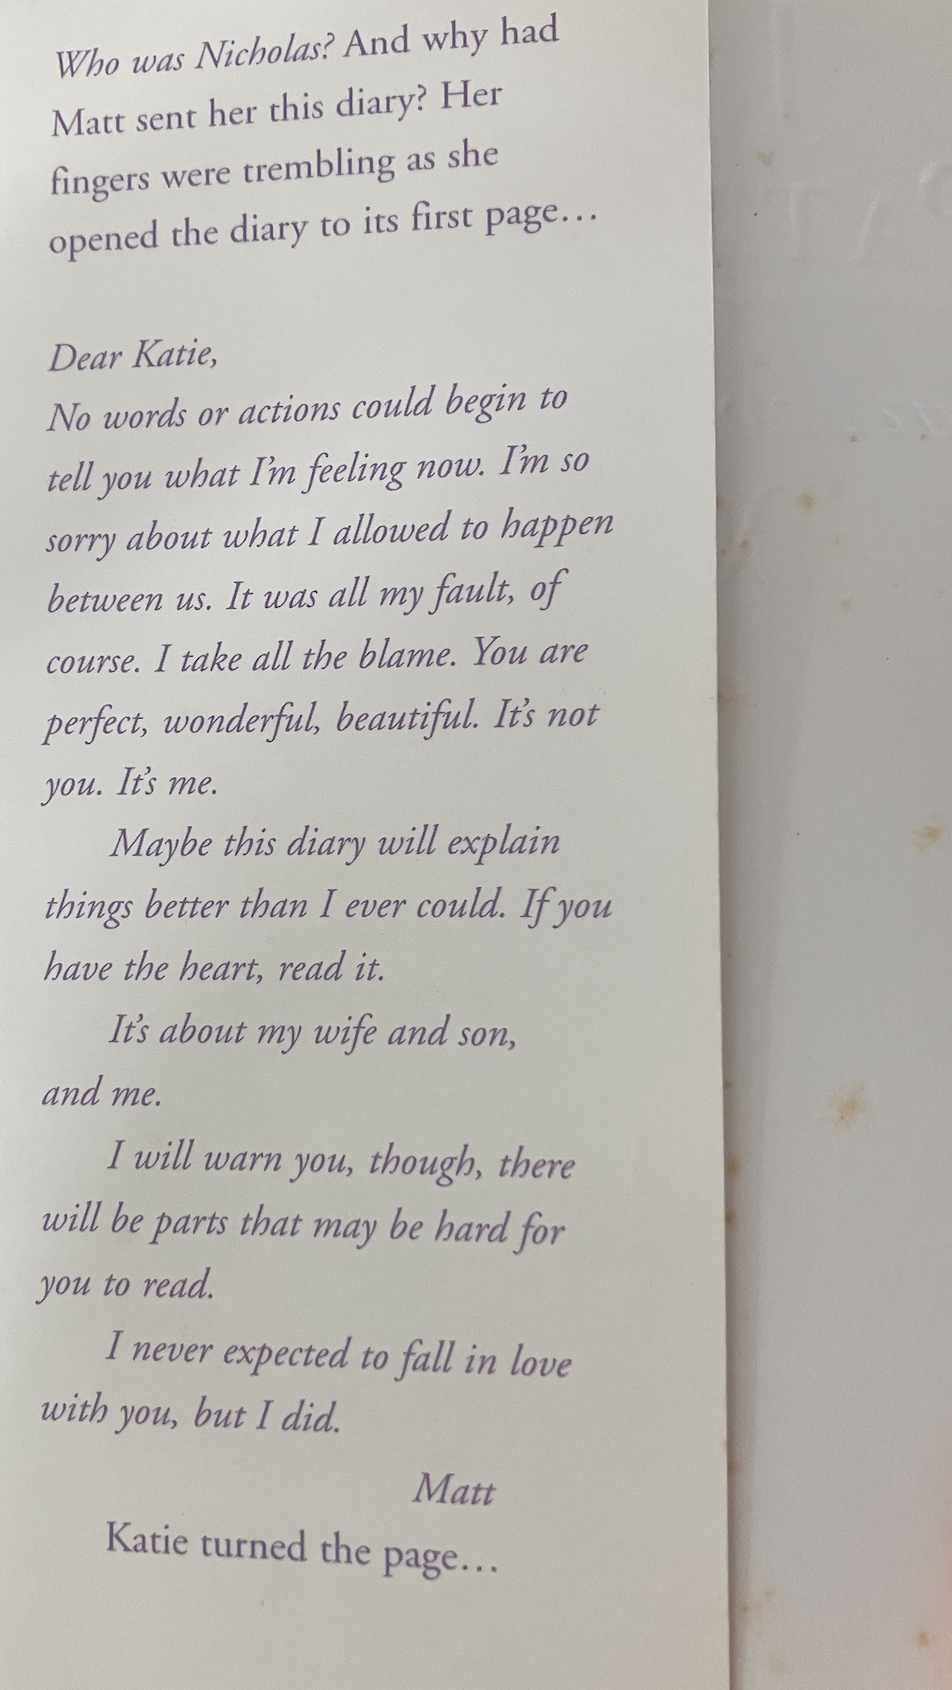 Who was Nicholas? And why had
Matt sent her this diary? Her
fingers were trembling as she
opened the diary to its first page…
Dear Katie,
No words or actions could begin to
tell you what I'm feeling now. I'm so
sorry about what I allowed to happen
between us. It was all my fault, of
course. I take all the blame. You are
perfect, wonderful, beautiful. It's not
you. It's me.
Maybe this diary will explain
things better than I ever could. If you
have the heart, read it.
It's about my wife and son,
and me.
I will warn you, though, there
will be parts that may be hard for
you to read.
I never expected to fall in love
with you, but I did.
Matt
Katie turned the page…